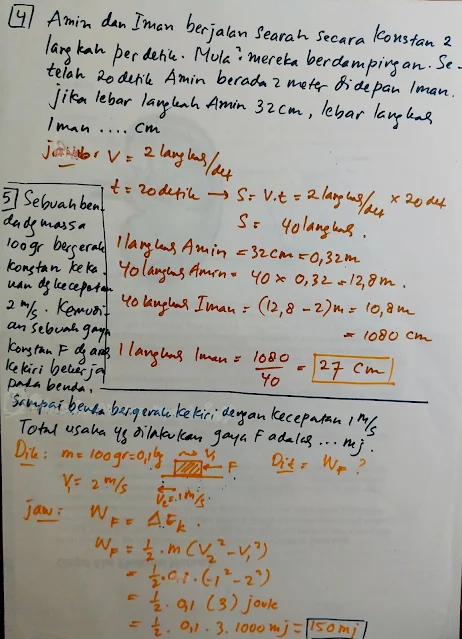 4 Amin dan Iman berjalan searah secara konstan 2
langkah per detik. Mula² mereka berdampingan. Se-
telah 20 detik Amin berada 2 meter di depan Iman.
jika lebar langkah Amin 32 cm, lebar langkah
Iman .... cm
jawab: V = 2 langkah/det
t = 20 detik → S = V.t = 2 langkah/det × 20 det
S = 40 langkah.
1 langkah Amin = 32 cm = 0,32 m
40 langkah Amin = 40 × 0,32 = 12,8 m.
40 langkah Iman = (12,8 - 2) m = 10,8 m
= 1080 cm
1 langkah Iman = 1080/40 = 27 cm
5 Sebuah ben-
da dg massa
100 gr bergerak
konstan keka-
nan dg kecepatan
2 m/s. Kemudi-
an sebuah gaya
konstan F dg arah
ke kiri bekerja
pada benda.
Sampai benda bergerak ke kiri dengan kecepatan 1 m/s
Total usaha yg dilakukan gaya F adalah ... mj.
Dik: m = 100 gr = 0,1 kg
V₁
F
Dit = W_F ?
V₁ = 2 m/s
V₂ = 1 m/s
jaw: W_F = ΔE_k.
W_F = 1/2 . m (V₂² - V₁²)
= 1/2 . 0,1 . (-1² - 2²)
= 1/2 . 0,1 (3) joule
= 1/2 . 0,1 . 3 . 1000 mj = 150 mj